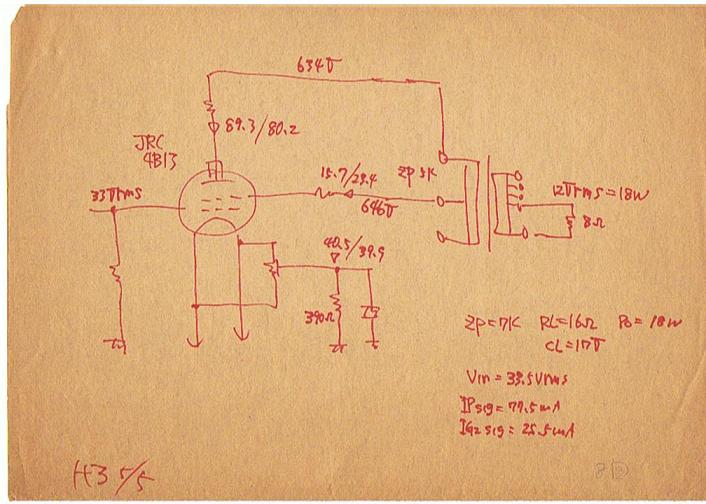 634V
89.3/80.2
JRC
4B13
33Vrms
15.7/29.4
646V
ZP 5K
12Vrms=18W
8Ω
40.5/39.9
390Ω
ZP=7K RL=16Ω Po=18W
CL=17V
Vin = 33.5Vrms
IPsig = 77.5mA
IG2 sig = 25.5mA
H3 5/5